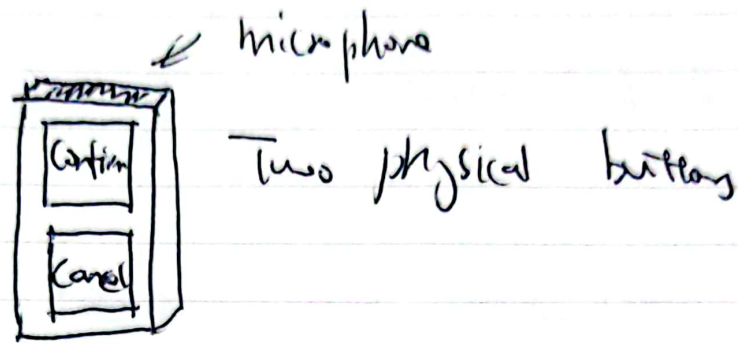 microphone
Confirm
Two physical buttons
Cancel